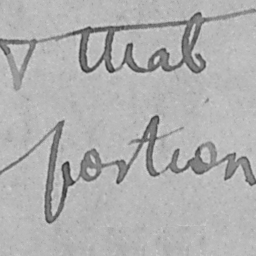 that
portion